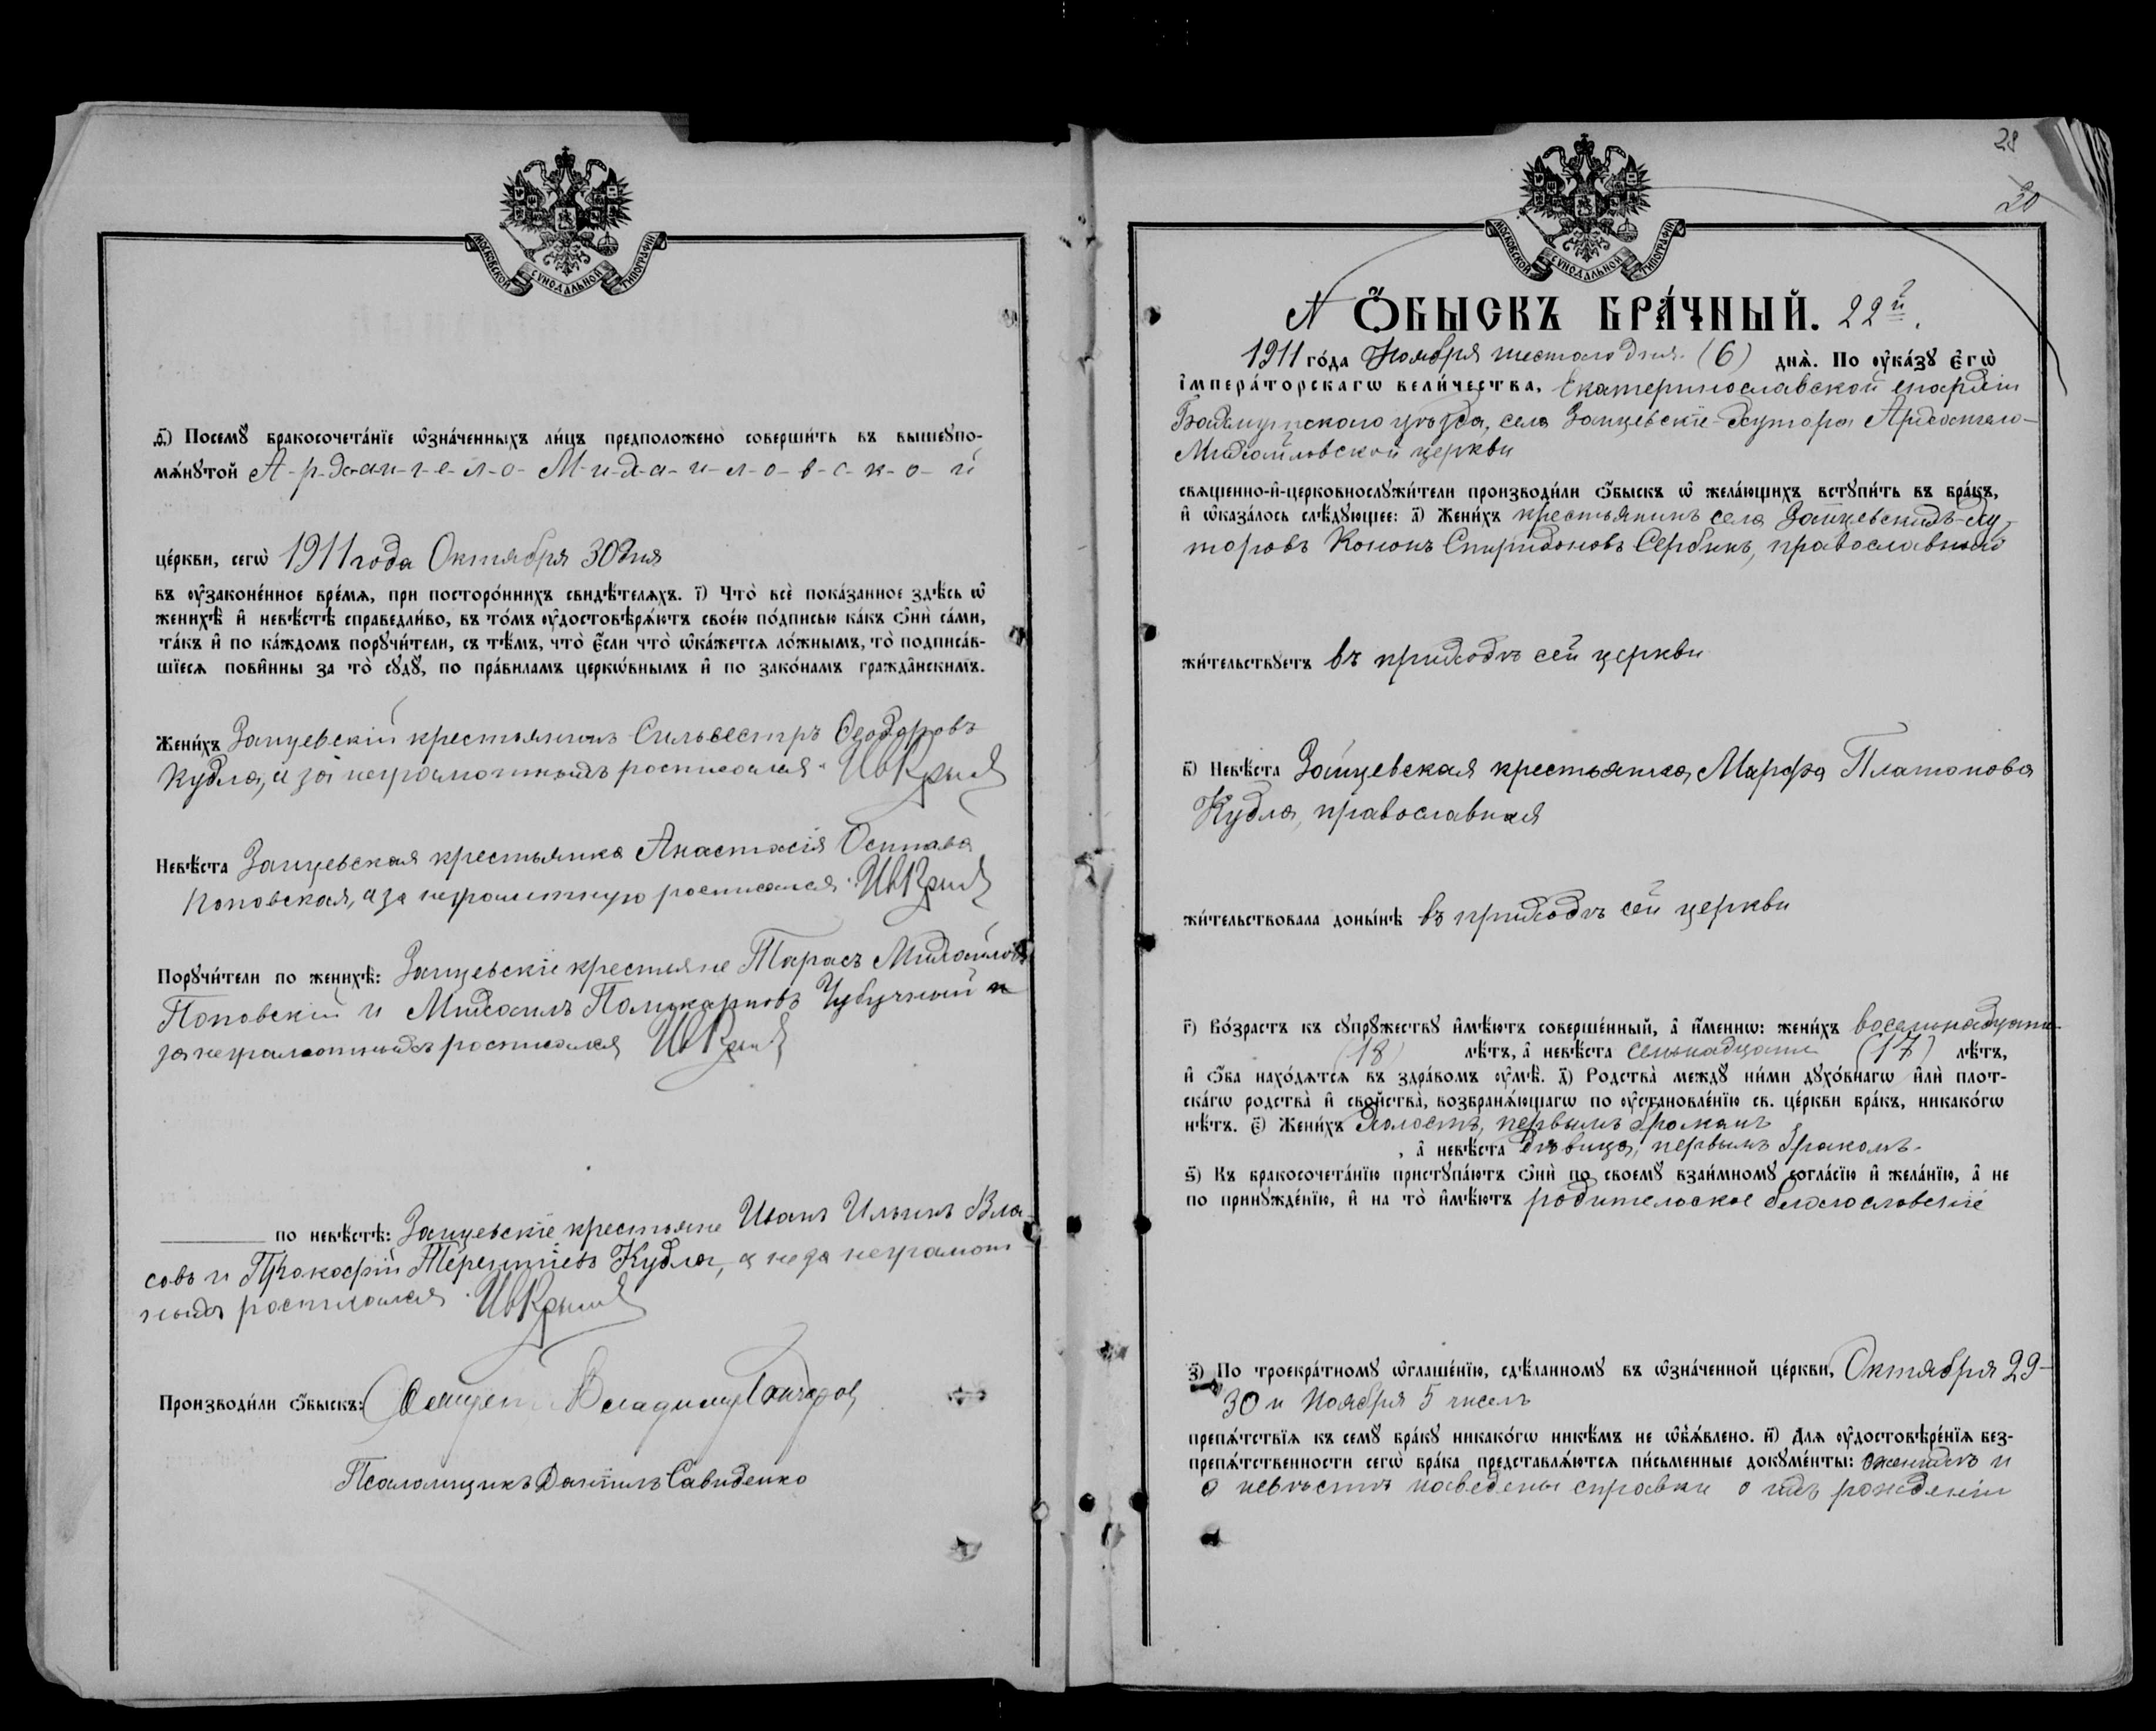 МОСКОВСКОЙ СУНОДАЛЬНОЙ ТИПОГРАФІИ
д҃) Посемꙋ̀ бракосочета́нїе ѡ҆зна́ченныхъ ли́цъ предположено̀ соверши́ть въ вышеꙋпо-
мѧ́нꙋтой А-р-х-а-н-г-е-л-о- М-и-х-а-и-л-о-в-с-к-о-й
це́ркви, сегѡ̀ 1911 года Октября 30 дня
въ ᲂу҆зако́ненное вре́мѧ, при посторо́ннихъ свидѣ́телѧхъ. і҃) Что̀ всѐ пока́занное здѣ́сь ѡ҆
женихѣ̀ и҆ невѣ́стѣ справедли́во, въ то́мъ ᲂу҆достовѣрѧ́ютъ свое́ю по́дписью ка́къ ѻ҆нѝ са́ми,
та́къ и҆ по ка́ждомъ порꙋчи́тели, съ тѣ́мъ, что̀ є҆́сли что̀ ѡ҆ка́жетсѧ ло́жнымъ, то̀ подписа́в-
шїесѧ пови́нны за то̀ сꙋдꙋ̀, по пра́виламъ церко́внымъ и҆ по зако́намъ гражда́нскимъ.
Жени́хъ Зайцевскій крестьянинъ Сильвестръ Ѳеодоровъ
Кудла, а за неграмотнымъ росписался
Невѣ́ста Зайцевская крестьянка Анастасія Осипова
Поповская, а за неграмотную росписался
Порꙋчи́тели по женихѣ̀: Зайцевскіе крестьяне Тарасъ Михайловъ
Поповскій и Михаилъ Поликарповъ Чубучный
за неграмотныхъ росписался
по невѣ́стѣ: Зайцевскіе крестьяне Иванъ Ильинъ Вла-
совъ и Прокофій Терентіевъ Кудла, а за неграмот
ныхъ росписался
Производи́ли ѻ҆́быскъ: Священ Владимир Гончаров
Псаломщикъ Даніилъ Савиденко
28
20
МОСКОВСКОЙ СУНОДАЛЬНОЙ ТИПОГРАФІИ
N Ѻ҆́БЫСКЪ БРА́ЧНЫЙ. 22й.
1911 го́да Ноября шестого дня (6) днѧ̀. По ᲂу҆ка́зꙋ Є҆гѡ̀
І҆мпера́торскагѡ Вели́чества, Екатеринославской епархіи
Бахмутского уѣзда, села Зайцевскіе-Хутора Архангело-
Михайловской церкви
свѧще́нно-и҆-церковнослꙋжи́тели производи́ли ѻ҆́быскъ ѡ҆ жела́ющихъ встꙋпи́ть въ бра́къ,
и҆ ѡ҆каза́лось слѣ́дꙋющее: а҃) Жени́хъ крестьянинъ села Зайцевскихъ-Ху-
торовъ Кононъ Спиридоновъ Сербинъ, православный
жи́тельствꙋетъ въ приходѣ сей церкви
в҃) Невѣ́ста Зайцевская крестьянка, Марфа Платонова
Кудла, православная
жи́тельствовала донынѣ въ приходѣ сей церкви
г҃) Во́зрастъ къ сꙋпрꙋ́жествꙋ и҆мѣ́ютъ соверше́нный, а҆ и҆́менно: жени́хъ восемнадцати
(18) лѣ́тъ, а҆ невѣ́ста семнадцати (17) лѣ́тъ,
и҆ ѻ҆́ба нахо́дѧтсѧ въ здра́вомъ ᲂу҆мѣ̀. д҃) Родства̀ междꙋ̀ ни́ми дꙋхо́внагѡ и҆лѝ пло́т-
ска́гѡ родства̀ и҆ сво́йства, возбранѧ́ющагѡ по ᲂу҆становле́нїю св. це́ркви бра́къ, никако́гѡ
нѣ́тъ. є҃) Жени́хъ Холостъ, первымъ бракомъ
, а҆ невѣ́ста дѣвица, первымъ бракомъ.
ѕ҃) Къ бракосочета́нїю пристꙋпа́ютъ ѻ҆нѝ по своемꙋ̀ взаи́мномꙋ согла́сїю и҆ жела́нїю, а҆ не
по принꙋжде́нїю, и҆ на то̀ и҆мѣ́ютъ родительское благословеніе
з҃) По троекра́тномꙋ ѡ҆глаше́нїю, сдѣ́ланномꙋ въ ѡ҆зна́ченной це́ркви, Октября 29-
30 и Ноября 5 чиселъ
препѧ́тствїѧ къ семꙋ̀ бра́кꙋ никако́гѡ никѣ́мъ не ѡ҆б̾ѧ́влено. и҃) Длѧ ᲂу҆достовѣре́нїѧ без-
препѧ́тственности сегѡ̀ бра́ка представлѧ́ютсѧ пи́сьменные докꙋме́нты: о женихѣ и
о невѣстѣ наведены справки о ихъ рожденіи